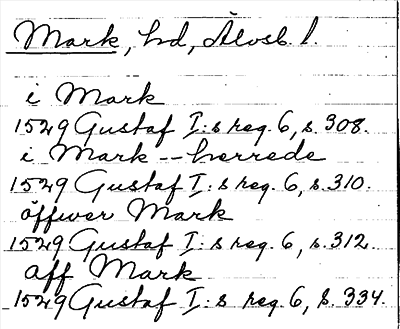 Mark, hd, Älvsb. l.
i Mark
1529 Gustaf I:s reg. 6, s. 308.
i Mark -- herrede
1529 Gustaf I:s reg. 6, s. 310.
öffwer Mark
1529 Gustaf I:s reg. 6, s. 312.
aff Mark
1529 Gustaf I:s reg. 6, s. 334.